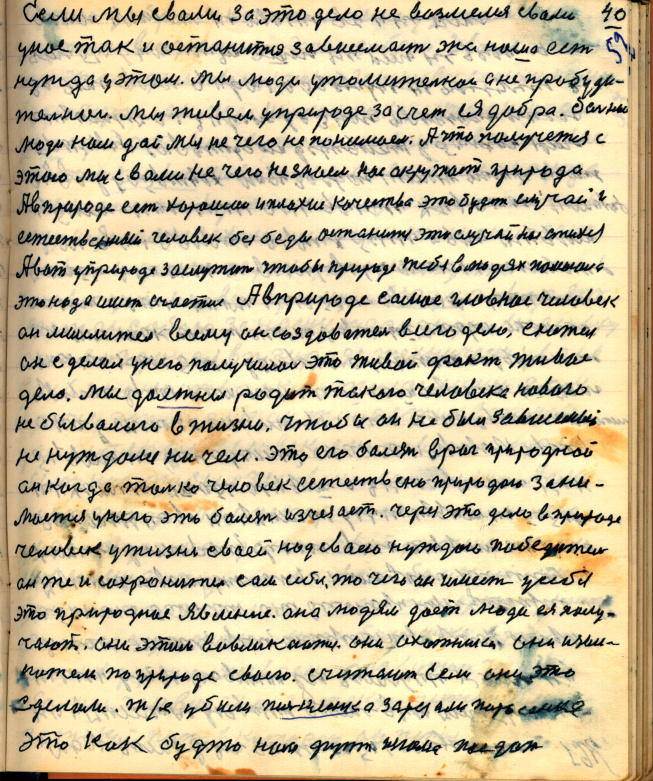 Если мы свами за это дело не возмемся свами 40
у нас так и останится зависемаст она наша ест 59
нужда у этом. мы люди утомителнои а не пробуди-
телнои. мы живем у природе за счет ея добра.
люди нам дай мы не чего не понимаем. А что получается с
этого мы с вами не чего не знаем нас окружает природа
А в природе ест хорошои и плохие качества это будет случай и
естественный человек без беды останится это случай нас
А вот у природе заслужит чтобы природе тебе в людях помогала
это нада имет счастие А в природе самое главное человек
он мыслител всему он создовател всего дела, скажем
он сделал у него получилос это живой факт живое
дело. мы должны родит такого человека нового
не бывалого в жизни. чтобы он не был зависемый
не нуждался ни чем. это его болезн враг природной
он когда толко человек естественой природою зани-
мается у него это болезн изчезает. через это дело в природе
человек у жизни своей над своею нуждою победител
он же и сохранител сам себя, то чего он имеет у себя
это природное явление. она людям дает люди ея полу-
чают. они этим вовликаюти они охотники они изви-
по природе своего. считают если они это
сделали. т/е убили зарезали поросенка
это как будто нам